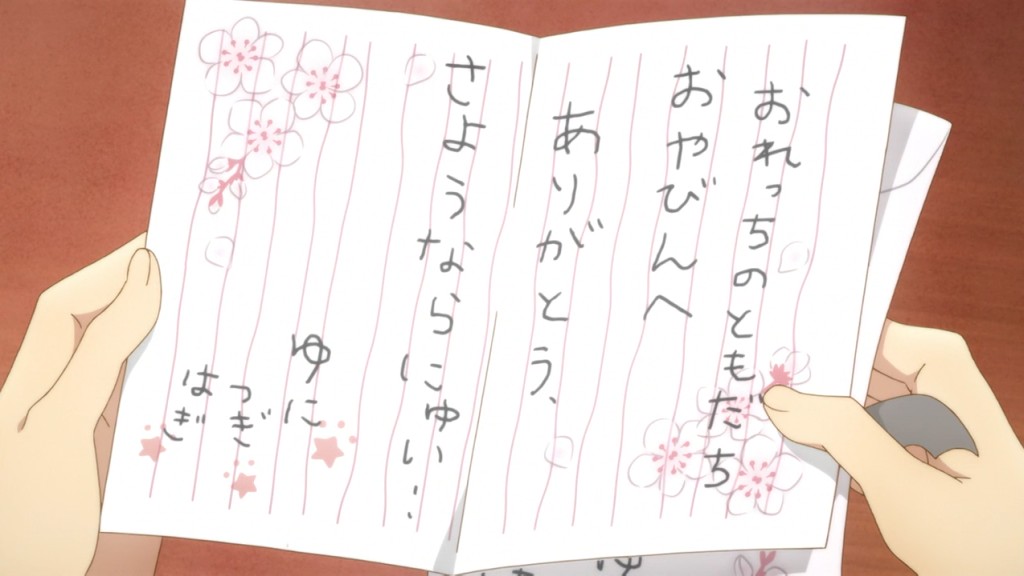 おれっちのともだち
おやびんへ
ありがとう、
さよならにゅい‥
ゆに
つぎ
はぎ
ゆ